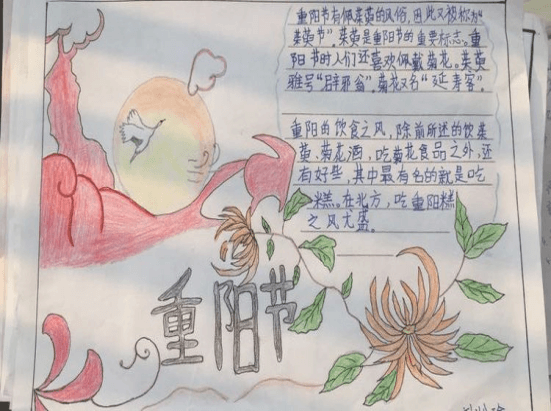 重阳节有佩茱萸的风俗，因此又被称为“
茱萸节”。茱萸是重阳节的重要标志。重
阳节时人们还喜欢佩戴菊花。茱萸
雅号“辟邪翁”，菊花又名“延寿客”。
重阳的饮食之风，除前所述的饮茱
萸、菊花酒，吃菊花食品之外，还
有好些，其中最有名的就是吃
糕。在北方，吃重阳糕
之风尤盛。
重阳节